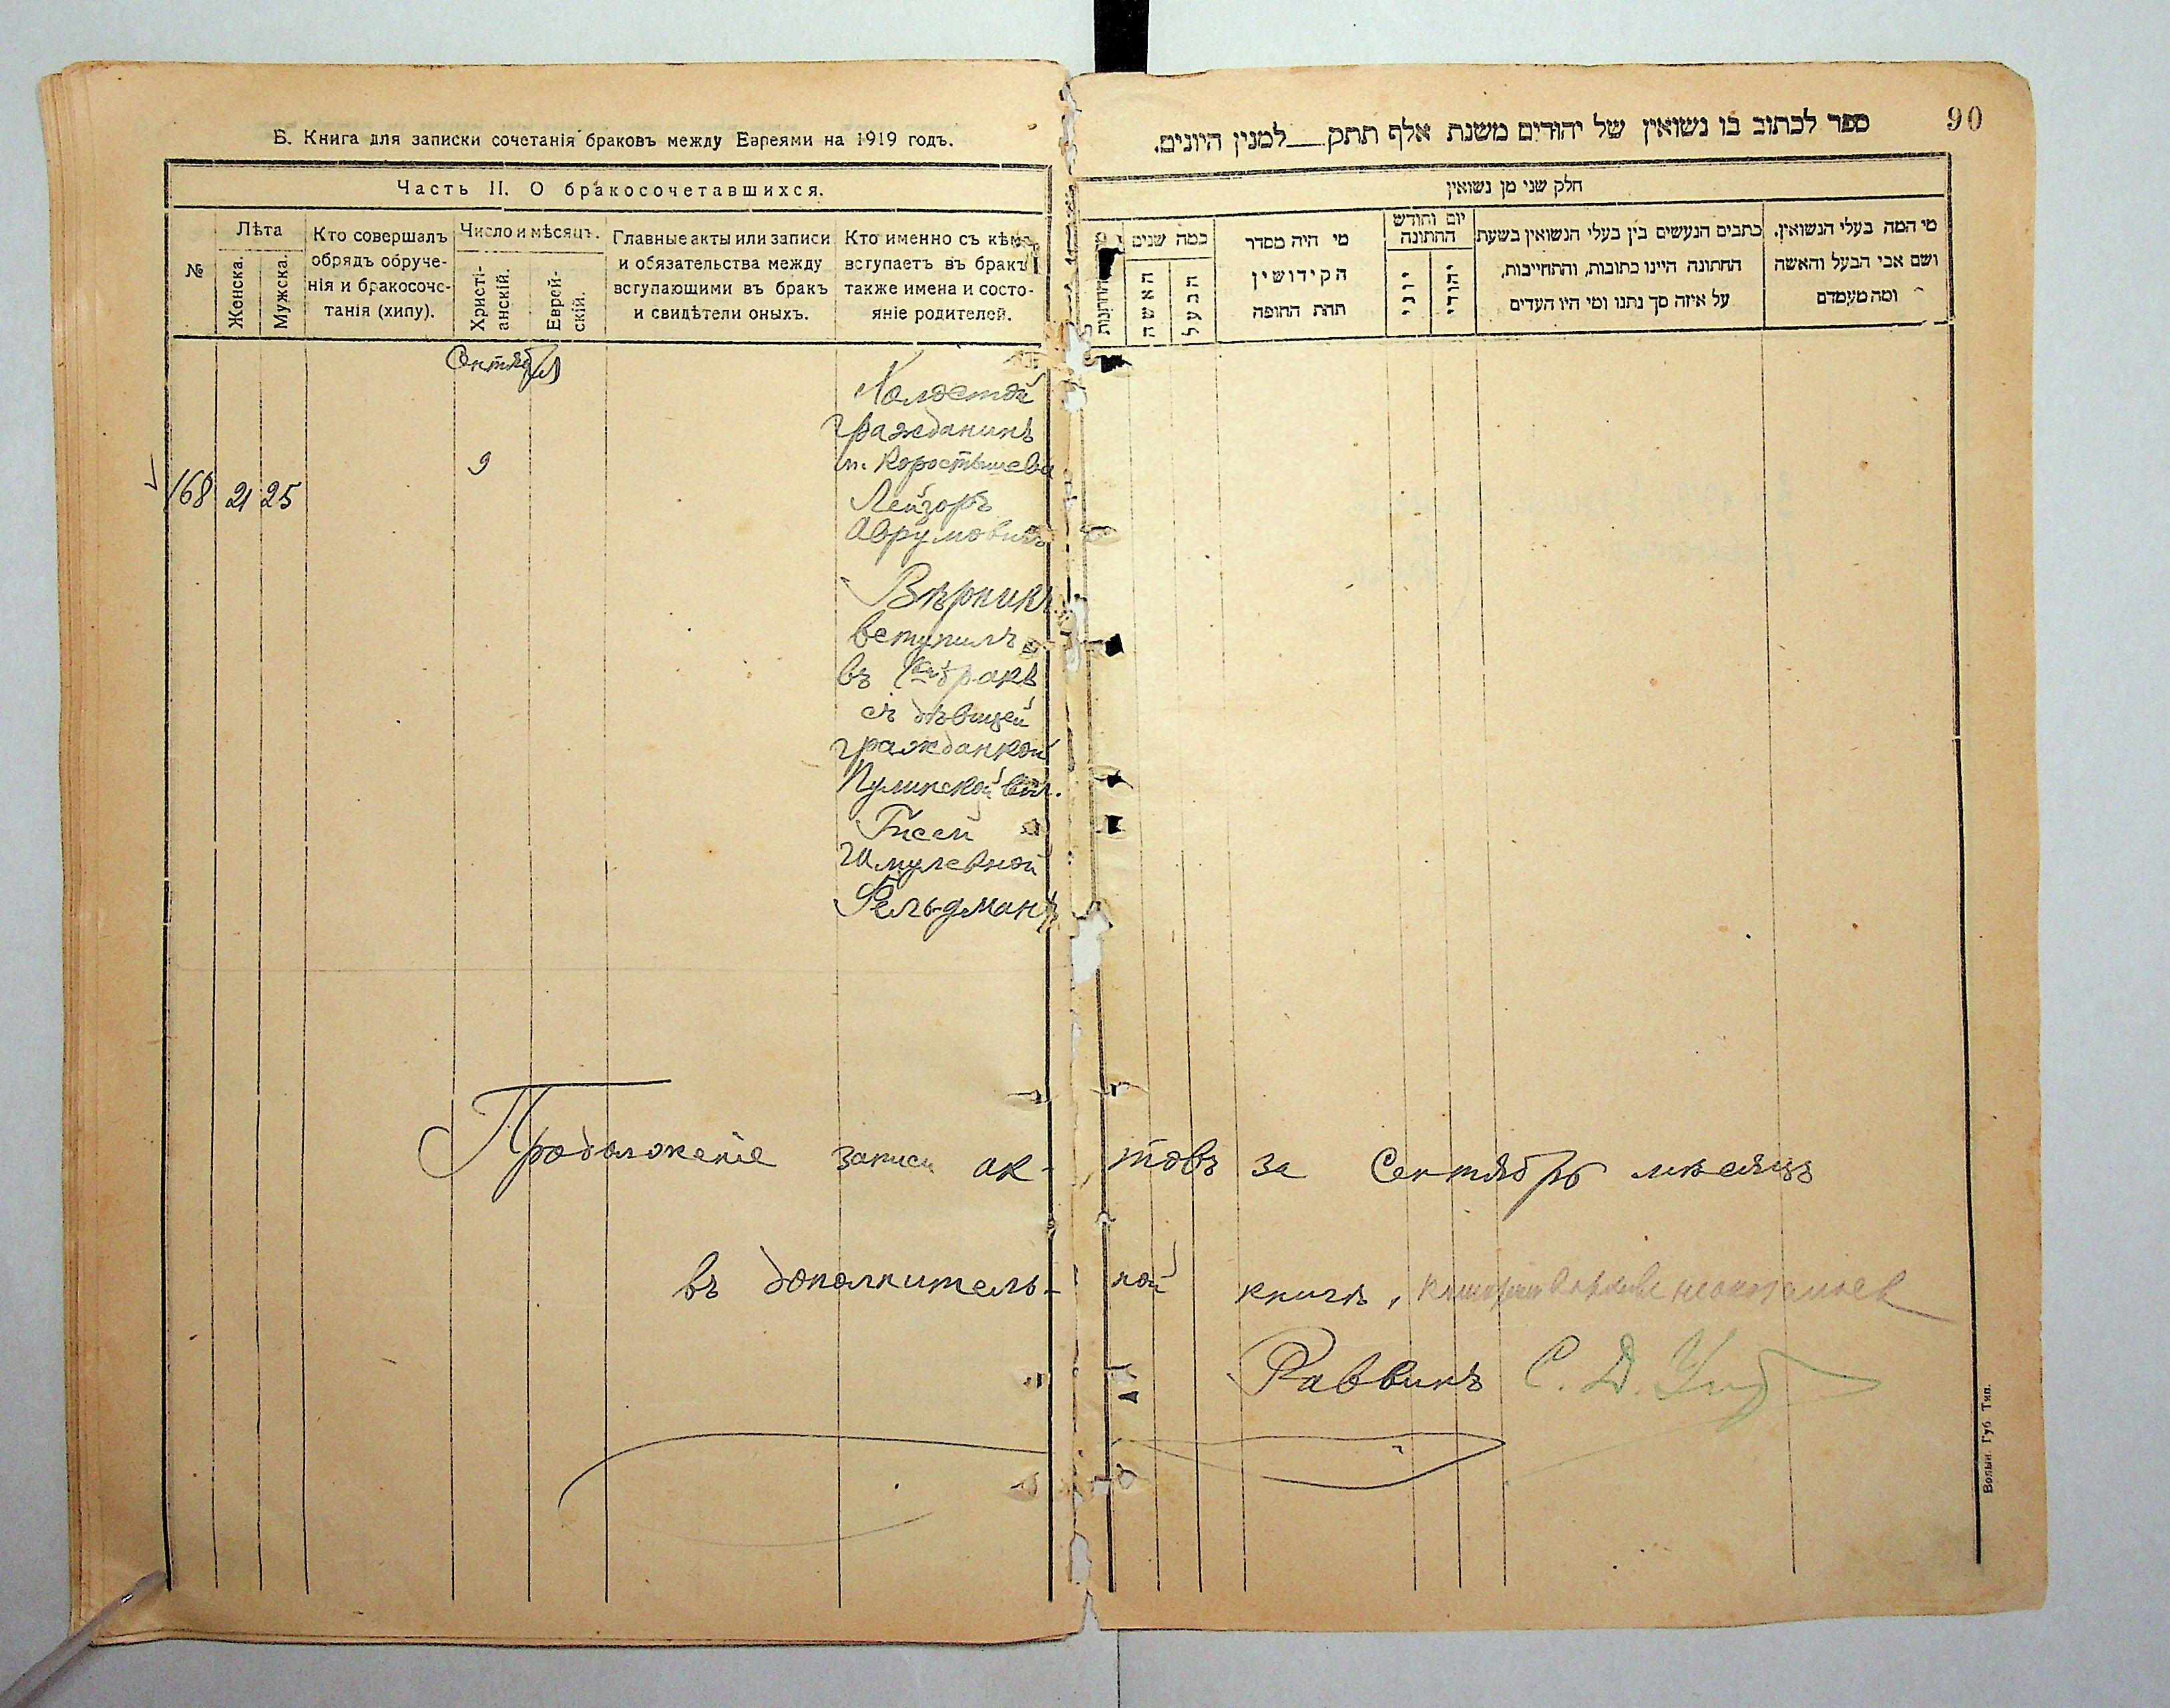 Б. Книга для записки сочетанія браковъ между Евреями на 1919 годъ.
Часть II. О бракосочетавшихся.
№
Лѣта
Женска.
Мужска.
Кто совершалъ
обрядъ обруче-
нія и бракосоче-
танія (хипу).
Число и мѣсяцъ.
Христі-
анскій.
Еврей-
скій.
Главные акты или записи
и обязательства между
вступающими въ бракъ
и свидѣтели оныхъ.
Кто именно съ кѣмъ
вступаетъ въ бракъ
также имена и состо-
яніе родителей.
Сентября
168 21 25 9
Холостой
гражданинъ
м. Коростышева
Лейзоръ
Аврумовичъ
Вѣрникъ
вступилъ
въ 1ый бракъ
съ дѣвицей
гражданкой
Пулинской вол.
Гисей
Шмулевной
Фельдманъ
90
ספר לכתוב בו נשואין של יהודים משנת אלף תתק__למנין היונים.
חלק שני מן נשואין
מי המה בעלי הנשואין,
ושם אבי הבעל והאשה
ומה מעמדם
כתבים הנעשים בין בעלי הנשואין בשעת
החתונה היינו כתובות, והתחייבות,
על איזה סך נתנו ומי היו העדים
יום וחודש
החתונה
יהודי
יוני
מי היה מסדר
הקידושין
תחת החופה
כמה שנים
הבעל
האשה
Продолженіе записи ак- товъ за Сентябрь мѣсяцъ
въ дополнитель- ной книгѣ,
Раввинъ С. Д.
Волын. Губ Тип.